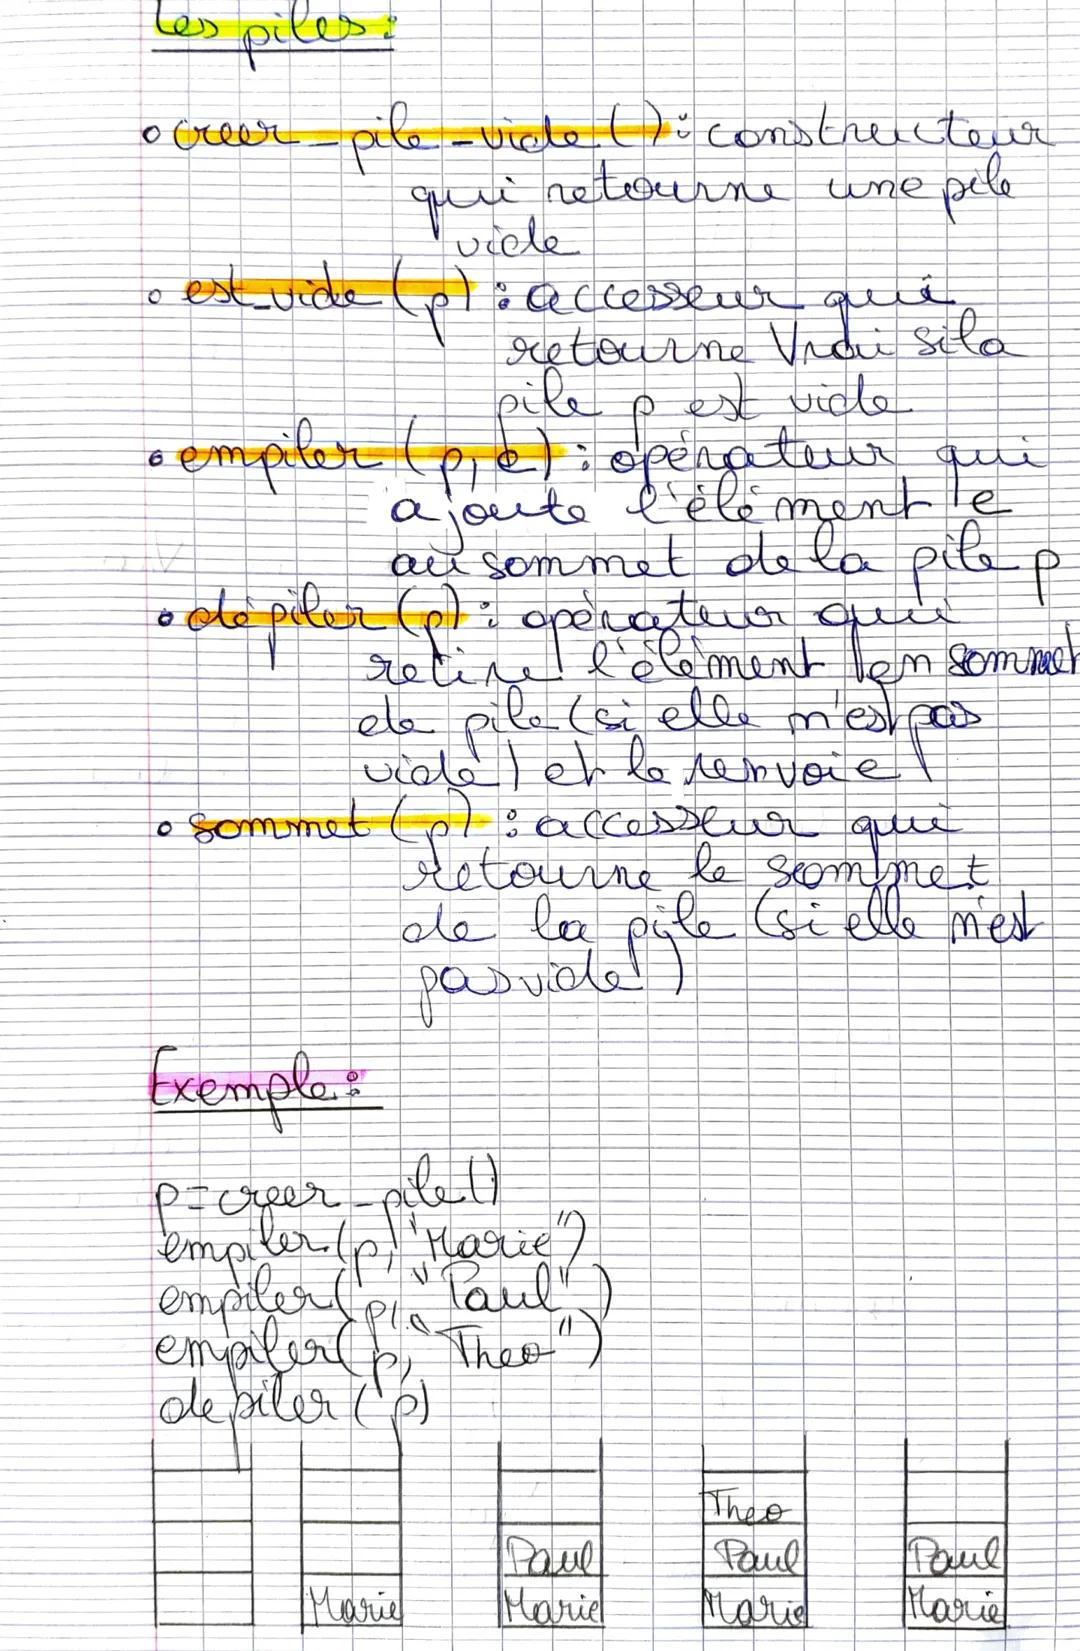 Les piles :
• creer_pile_vide() : constructeur
qui retourne une pile
vide
• est_vide (p) : accesseur qui
retourne Vrai si la
pile p est vide
• empiler (p, e) : opérateur qui
ajoute l'élément e
au sommet de la pile p
• dépiler (p) : opérateur qui
retire l'élément en sommet
de pile (si elle n'est pas
vide) et le renvoie
• sommet (p) : accesseur qui
retourne le sommet
de la pile (si elle n'est
pas vide)
Exemple :
p=creer_pile()
empiler(p, "Marie")
empiler(p, "Paul")
empiler(p, "Theo")
depiler (p)
Theo
Paul Paul Paul
Marie Marie Marie Marie